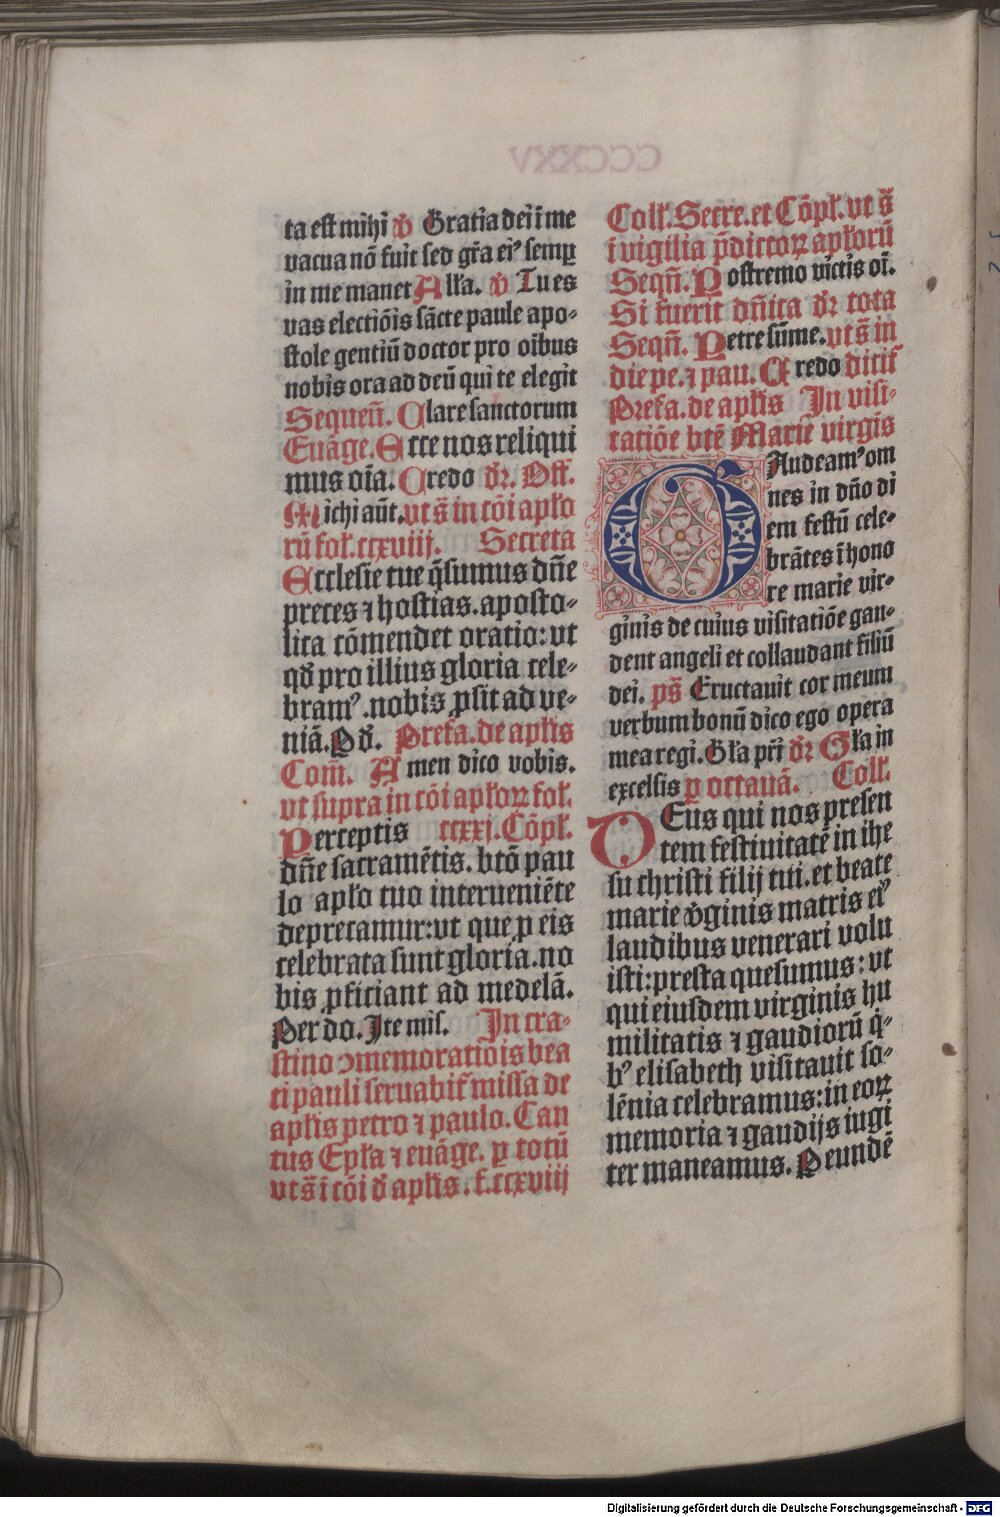 ta est mihi ꝟ Gratia dei ī me
vacua nō fuit sed gr̄a ei᷒ semꝑ
in me manet All'a. ꝟ Tu es
vas electiōis sācte paule apo-
stole gentiū doctor pro oībus
nobis ora ad deū qui te elegit
Sequen̄. Clare sanctorum
Euāge. Ecce nos reliqui
mus oīa. Credo dr̄. Off.
Michi aūt. vt s̄ in cōi apło
rū fol. ccxviij. Secreta
Ecclesie tue q̄sumus dn̄e
preces ⁊ hostias. aposto-
lica cōmendet oratio: vt
qd̄ pro illius gloria cele-
bram᷒. nobis ꝓsit ad ve-
niā. P d̄. Prefa. de aplis
Com̄. Amen dico vobis.
vt supra in cōi aploꝝ fol.
Perceptis ccxxj. Cōpl.
dn̄e sacramētis. btō pau
lo aplo tuo interueniēte
deprecamur: vt que ꝓ eis
celebrata sunt gloria. no
bis ꝓficiant ad medelā.
Per do. Ite mis. In cra-
stino ↄmemoratiōis bea
ti pauli seruabit' missa de
aplis petro ⁊ paulo. Can
tus Epła ⁊ euāge. ꝑ totū
vt s̄ ī cōi d̄ aplis. f. ccxviij
Coll. Secre. et Cōpl. vt s̄
ī vigilia p̄dictoꝝ aplorū
Seqn̄. Postremo victis oī.
Si fuerit dn̄ica dr̄ tota
Seqn̄. Petre sūme. vt s̄ in
die pe. ⁊ pau. Credo dicit'
Prefa. de aplis In visi-
tatiōe btē Marie virgīs
GAudeam᷒ om
nes in dn̄o di
em festū cele-
brātes ī hono
re marie vir-
ginis de cuius visitatiōe gau-
dent angeli et collaudant filiū
dei. ps̄ Eructauit cor meum
verbum bonū dico ego opera
mea regi. Gła pr̄i dr̄ Gła in
excelsis ꝑ octauā. Coll.
DEus qui nos presen
tem festiuitatē in ihe
su christi filij tui. et beate
marie v̄ginis matris ei᷒
laudibus venerari volu
isti: presta quesumus: vt
qui eiusdem virginis hu
militatis ⁊ gaudiorū q̇-
b᷒ elisabeth visitauit so-
lēnia celebramus: in eoꝝ
memoria ⁊ gaudijs iugi
ter maneamus. P eundē
Digitalisierung gefördert durch die Deutsche Forschungsgemeinschaft - DFG